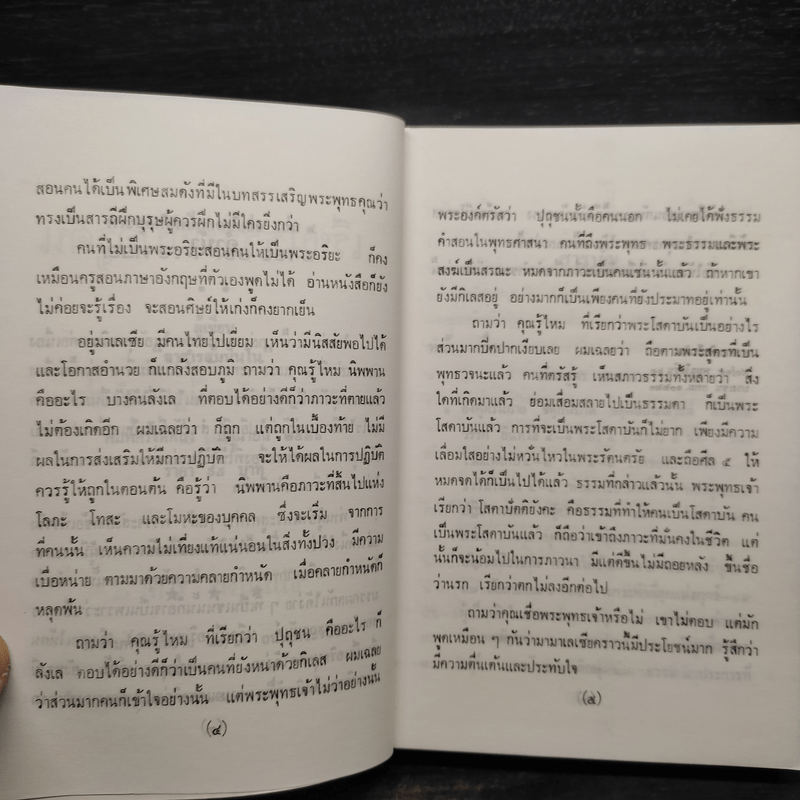 สอนคนได้เป็นพิเศษสมดังที่มีในบทสรรเสริญพระพุทธคุณว่า
ทรงเป็นสารถีฝึกบุรุษผู้ควรฝึกไม่มีใครยิ่งกว่า
คนที่ไม่เป็นพระอริยะสอนคนให้เป็นพระอริยะ ก็คง
เหมือนครูสอนภาษาอังกฤษที่ตัวเองพูดไม่ได้ อ่านหนังสือก็ยัง
ไม่ค่อยจะรู้เรื่อง จะสอนศิษย์ให้เก่งก็คงยากเย็น
อยู่มาเลเซีย มีคนไทยไปเยี่ยม เห็นว่ามีนิสสัยพอไปได้
และโอกาสอำนวย ก็แกล้งสอบภูมิ ถามว่า คุณรู้ไหม นิพพาน
คืออะไร บางคนลังเล ที่ตอบได้อย่างดีก็ว่าภาวะที่ตายแล้ว
ไม่ต้องเกิดอีก ผมเฉลยว่า ก็ถูก แต่ถูกในเบื้องท้าย ไม่มี
ผลในการส่งเสริมให้มีการปฏิบัติ จะให้ได้ผลในการปฏิบัติ
ควรรู้ให้ถูกในตอนต้น คือรู้ว่า นิพพานคือภาวะที่สิ้นไปแห่ง
โลภะ โทสะ และโมหะของบุคคล ซึ่งจะเริ่ม จากการ
ที่คนนั้น เห็นความไม่เที่ยงแท้แน่นอนในสิ่งทั้งปวง มีความ
เบื่อหน่าย ตามมาด้วยความคลายกำหนัด เมื่อคลายกำหนัดก็
หลุดพ้น
ถามว่า คุณรู้ไหม ที่เรียกว่า ปุถุชน คืออะไร ก็
ลังเล ตอบได้อย่างดีก็ว่าเป็นคนที่ยังหนาด้วยกิเลส ผมเฉลย
ว่าส่วนมากคนก็เข้าใจอย่างนั้น แต่พระพุทธเจ้าไม่ว่าอย่างนั้น
(๔)
พระองค์ตรัสว่า ปุถุชนนั้นคือคนนอก ไม่เคยได้ฟังธรรม
คำสอนในพุทธศาสนา คนที่ถึงพระพุทธ พระธรรมและพระ
สงฆ์เป็นสรณะ หมดจากภาวะเป็นคนเช่นนั้นแล้ว ถ้าหากเขา
ยังมีกิเลสอยู่ อย่างมากก็เป็นเพียงคนที่ยังประมาทอยู่เท่านั้น
ถามว่า คุณรู้ไหม ที่เรียกว่าพระโสดาบันเป็นอย่างไร
ส่วนมากปิดปากเงียบเลย ผมเฉลยว่า ถือตามพระสูตรที่เป็น
พุทธวจนะแล้ว คนที่ตรัสรู้ เห็นสภาวธรรมทั้งหลายว่า สิ่ง
ใดที่เกิดมาแล้ว ย่อมเสื่อมสลายไปเป็นธรรมดา ก็เป็นพระ
โสดาบันแล้ว การที่จะเป็นพระโสดาบันก็ไม่ยาก เพียงมีความ
เลื่อมใสอย่างไม่หวั่นไหวในพระรัตนตรัย และถือศีล ๕ ให้
หมดจดได้ก็เป็นไปได้แล้ว ธรรมที่กล่าวแล้วนั้น พระพุทธเจ้า
เรียกว่า โสดาปัตติยังคะ คือธรรมที่ทำให้คนเป็นโสดาบัน คน
เป็นพระโสดาบันแล้ว ก็ถือว่าเข้าถึงภาวะที่มั่นคงในชีวิต แต่
นั้นก็จะน้อมไปในการภาวนา มีแต่ดีขึ้นไม่มีถอยหลัง ขึ้นชื่อ
ว่านรก เรียกว่าตกไม่ลงอีกต่อไป
ถามว่าคุณเชื่อพระพุทธเจ้าหรือไม่ เขาไม่ตอบ แต่มัก
พูดเหมือน ๆ กันว่ามามาเลเซียคราวนี้มีประโยชน์มาก รู้สึกว่า
มีความตื่นเต้นและประทับใจ
(๕)